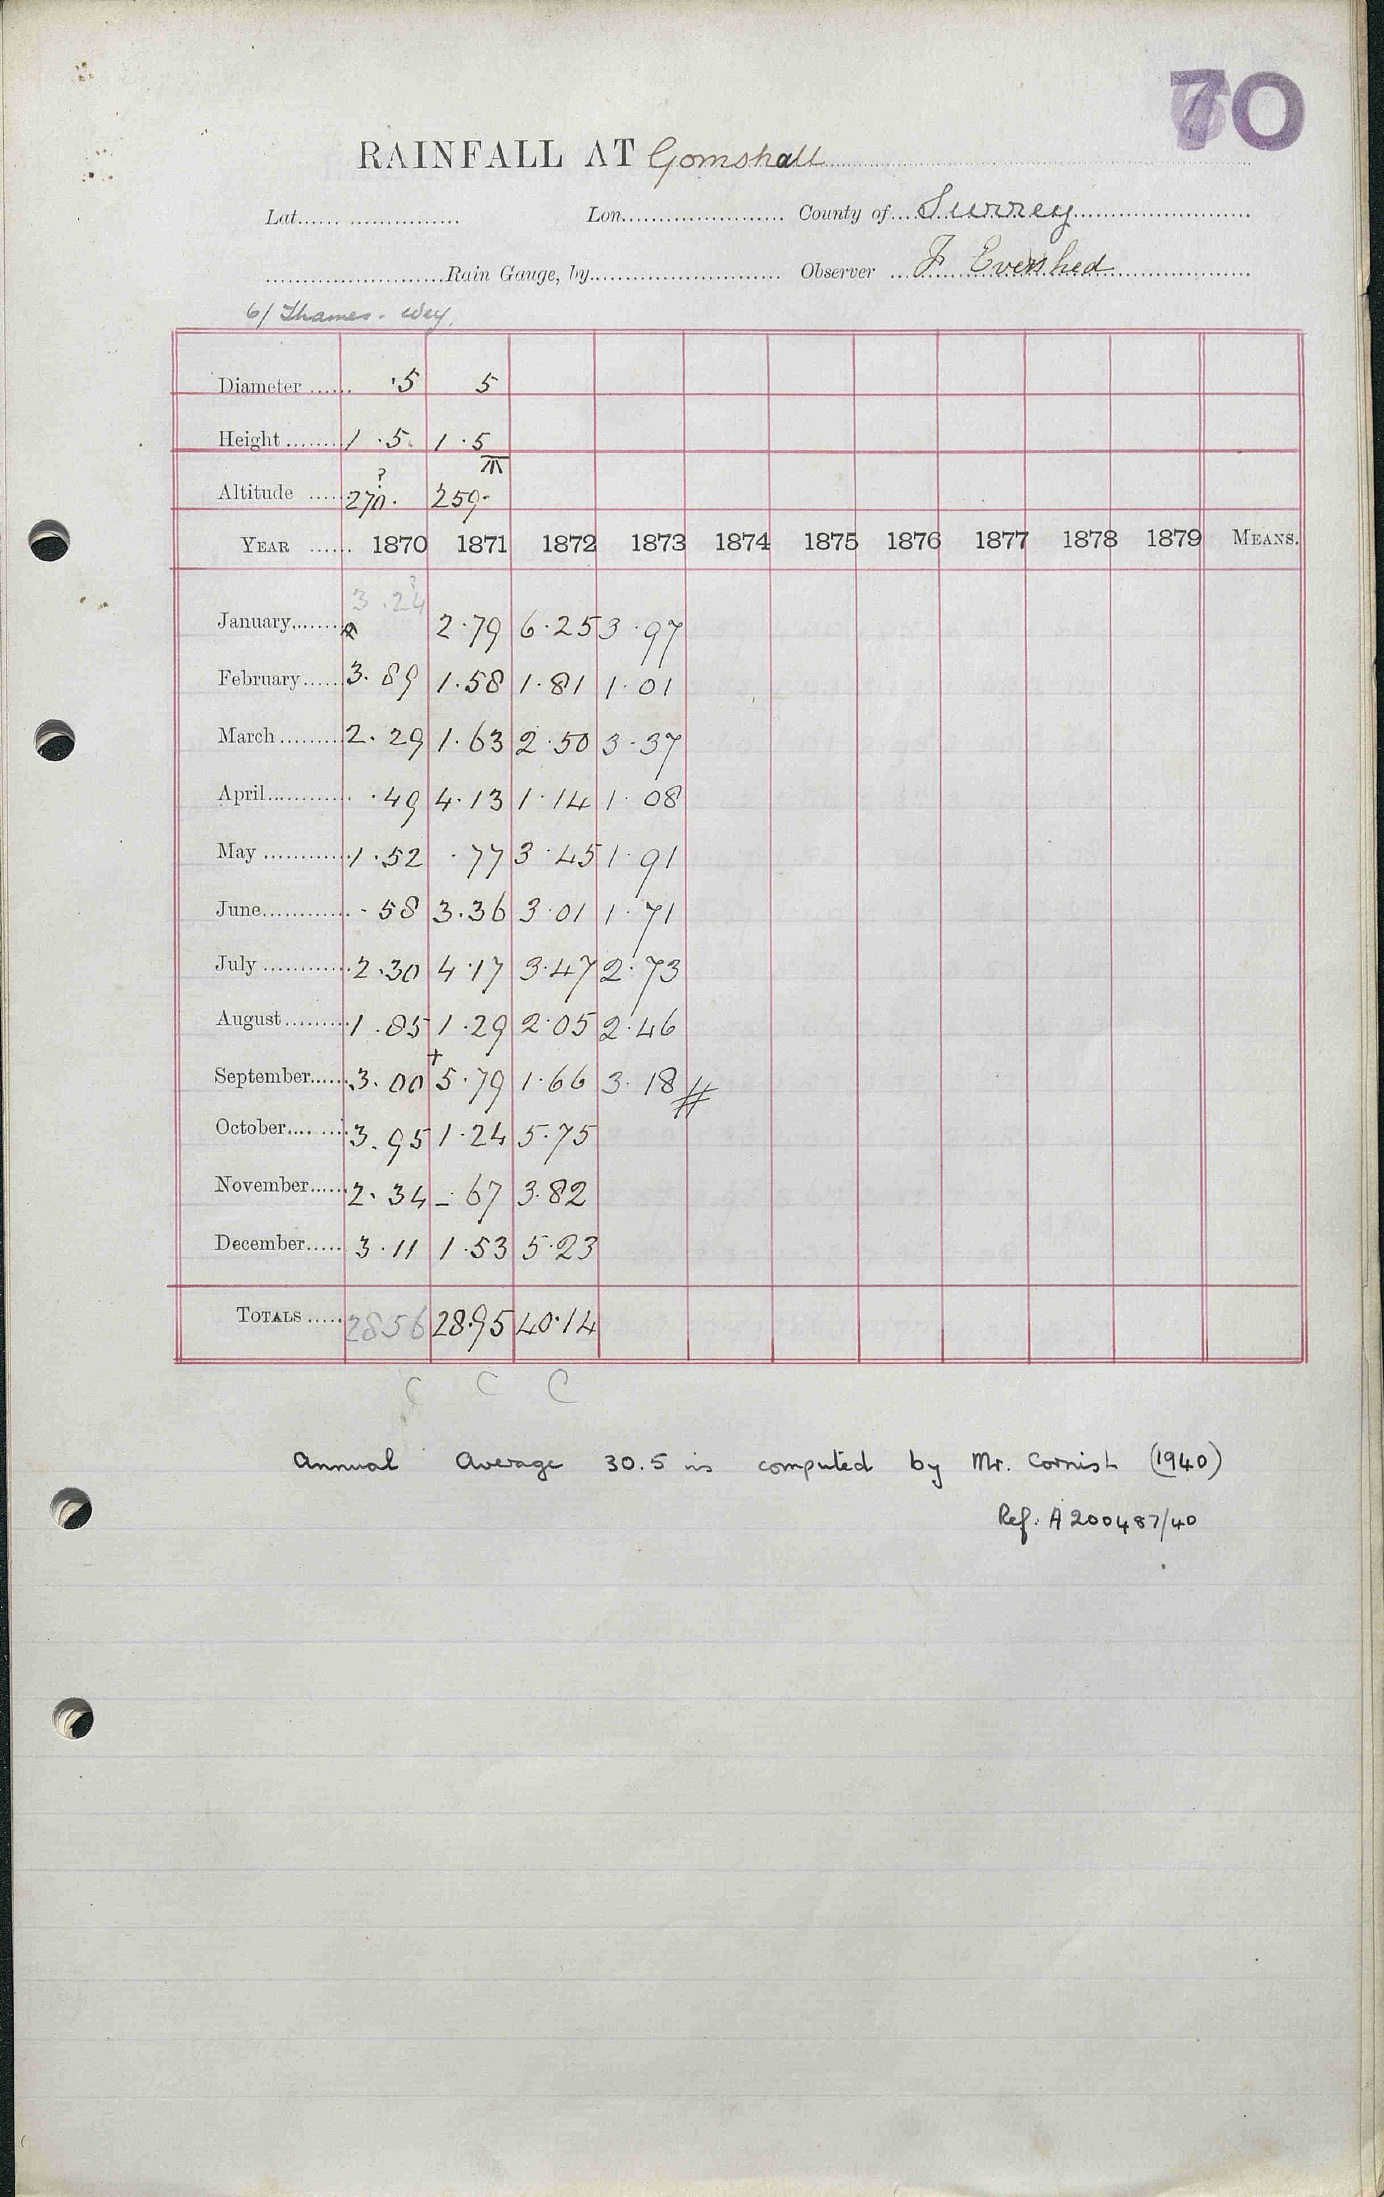 70
RAINFALL AT Gomshall
Lat. Lon. County of Surrey
Rain Gauge, by Observer F Evershed
6/ Thames - Wey.
Diameter 5 5
Height 1 .5 1 .5
Altitude 270. ? 259.
YEAR 1870 1871 1872 1873 1874 1875 1876 1877 1878 1879 MEANS.
January 3.24 ? 2.79 6.25 3.97
February 3.89 1.58 1.81 1.01
March 2.29 1.63 2.50 3.37
April .49 4.13 1.14 1.08
May 1.52 .77 3.45 1.91
June .58 3.36 3.01 1.71
July 2.30 4.17 3.47 2.73
August 1.85 1.29 2.05 2.46
September 3.00 + 5.79 1.66 3.18 #
October 3.95 1.24 5.75
November 2.34 - .67 3.82
December 3.11 1.53 5.23
TOTALS 2856 28.95 40.14
C C C
Annual Average 30.5 in computed by Mr. Cornish (1940)
Ref: A 200487/40